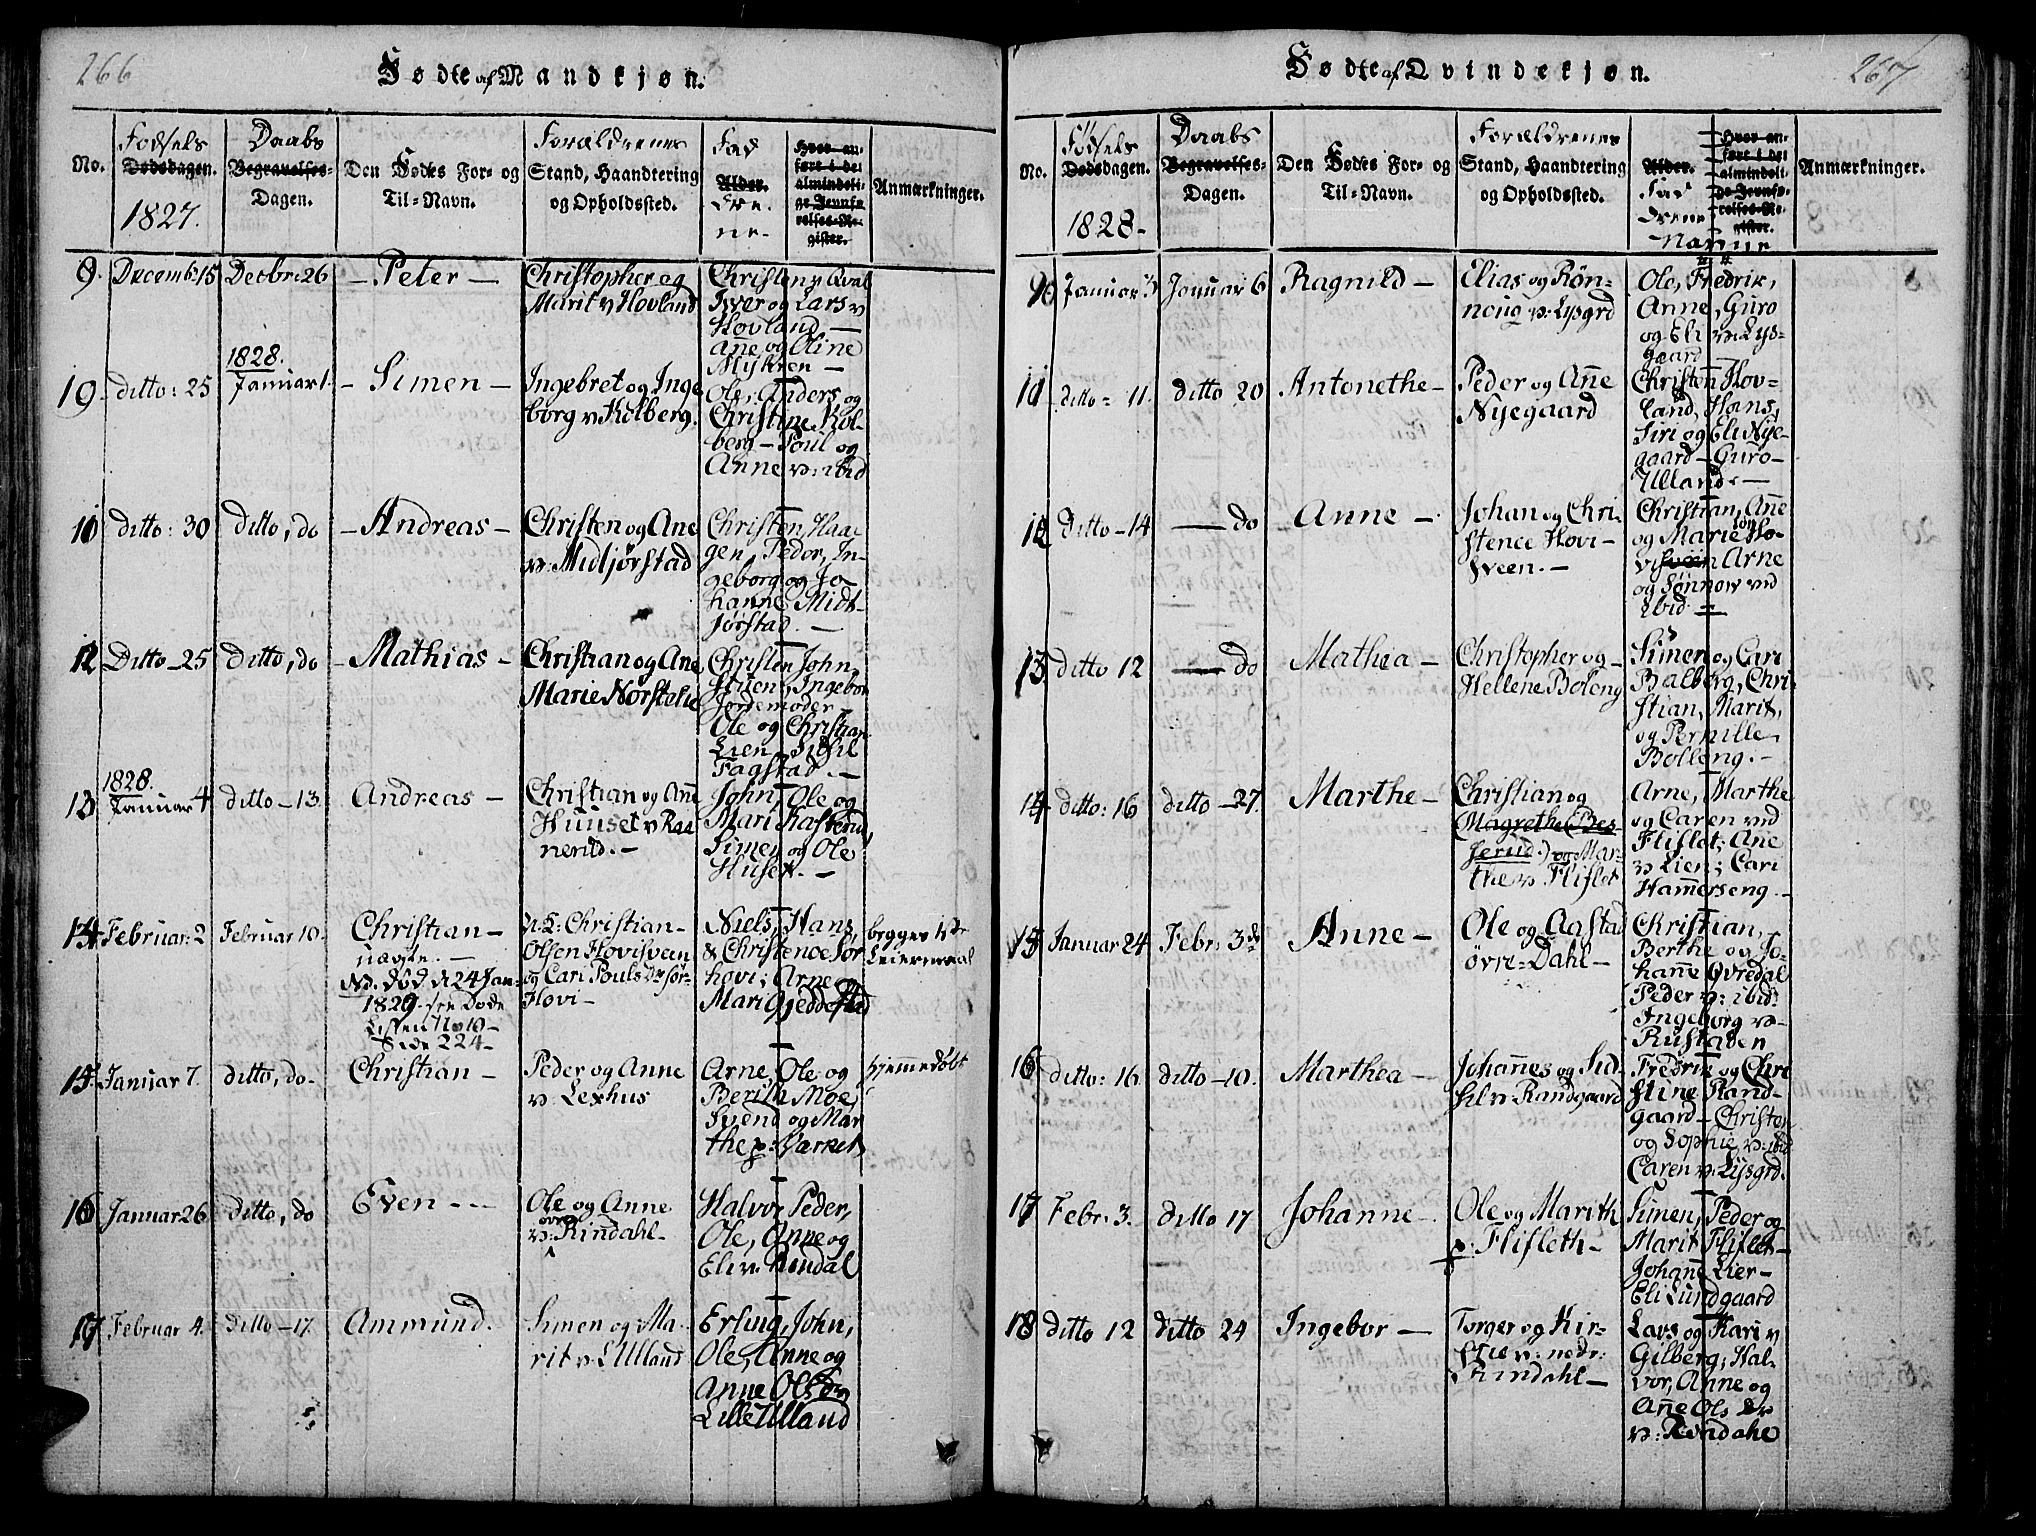 266
Fødte af Mandkjøn.
No.
Fødsels
Dødsdagen.
1827.
Daabs
Begravelses-
Dagen.
Den Fødtes For- og
Til-Navn.
Forældrenes
Stand, Haandtering
og Opholdssted.
Fad
Alder.
dre.
ne.
Hvor an-
ført i de
almindeli-
ge Jevnfø-
relses-Re-
gister.
Anmærkninger.
9. Decemb: 15 Decbr: 26 — Peter —
Christopher og
Marit v Hovland
Christen v
Iver og Lars v
Hovland —
Anne og Oline
Mystren —
10 ditto: 25
1828.
Januar 1. — Simen —
Ingebret og Inge
borg v Kolberg.
Ole, Anders og
Christine Kol-
berg — Poul og
Anne v: ibid
11 ditto: 30 ditto, do — Andreas —
Christen og Ane
v: Midtjørstad
Christen, Haa-
gen, Peder, In-
geborg og Jo
hanne Midt-
Jørstad. —
12 Ditto — 25 ditto, do — Mathias —
Christian og Ane
Marie Norstehe
Christen, John
stuen, Ingebor
Jordemoder —
Ole og Christian
Lien, Sidsil
Fagstad. —
13
1828.
Januar 4 ditto — 13. Andreas —
Christian og Anne
Huuset v Raa
nerud. —
John, Ole og
Mari Kasterud,
Simen og Ole
Huset. —
14 Februar: 2 Februar 10. Christian —
uægte. —
NB. død d 24 Jan-
1829. see Døde
Listen No 10 —
Side 224 —
Christian
Olsen Hovisveen
og Cari Pouls Dr Sør-
Hovi —
Niels, Hans,
& Christence Sør
hovi; Arne og
Mari Gjeddestad
begges 1ste
Leiermaal
15 Januar 7. ditto, do. Christian —
Peder og Anne
v: Lexhus
Arne, Ole og
Berith Moe,
Svend og Mar
the p: Værket
hjemmedøbt
16 Januar 26 ditto, do Even — — —
Ole og Anne
øvre
v: Rindahl —
Halvor, Peder,
Ole, Anne og
Eli v: Rindal
17 Februar 4. ditto — 17. Ammund.
Simen og Ma-
rit v: L Ulland
Erling, John,
Ole, Anne og
Anne Olsdr
Lille Ulland
267
Fødte af Qvindekjøn.
No.
Fødsels
Dødsdagen.
1828 —
Daabs
Begravelses-
Dagen.
Den Fødtes For- og
Til-Navn.
Forældrenes
Stand, Haandtering
og Opholdssted.
Alder.
Fad
drenes
Navne
Hvor an-
ført i de
almindeli-
ge Jevnfø-
relses-Re-
gister.
Anmærkninger.
10 Januar Januar 6 Ragnild —
Elias og Røn-
noug v: Lysgrd
Ole, Fredrik,
Anne, Guro
og Eli v: Lys-
gaard —
11 ditto — 11. ditto 20 Antonethe —
Peder og Anne
Nyegaard
Christen Hov-
land, Hans,
Siri og Eli Nye-
gaard — Guro —
Ulland. —
12 Ditto — 14 — do Anne —
Johan og Chri-
stence Hovi —
sveen. —
Christian, Anne
og Marie Ho-
visveen Arne
og Sønnow ved
ibid —
13 ditto 12 — do Mathea —
Christopher og —
Hellene Boleng
Simen og Cari
Balberg, Chri-
stian, Marit,
og Pernille
Bolleng. —
14 ditto: 16 ditto — 27. Marthe —
Christian og
Magrethe (Bes-
serud) og Mar-
the v: Fliflet
Arne, Marthe
og Caren ved
Fliflet; Ane
v: Lien; Cari
Hammerseng. —
15 Januar 24 Febr: 3de Anne —
Ole og Aastad
øvre = Dahl —
Christian,
Berthe og Jo-
hanne Øvredal
Peder v: ibid:
Ingeborg v:
Rustaden
16 ditto: 16. ditto — 10. Marthea —
Johannes og Sid-
sil v: Randgaard
Fredrik og Chri
stine Rand-
gaard — Christen
og Sophie v: ibid
Caren v: Lysgrd.
17 Febr: 3. ditto 17 Johanne —
Ole og Marith
p: Flifleth —
Simen, Peder og
Marit Fliflet —
Johanne Lier —
Eli Lundgaard
18 ditto 12 ditto 24 Ingebor —
Torger og Kir-
stie v: nedr:
Rindahl —
Lars og Kari v
Gilberg, Hal-
vor, Anne og
Anne Ols dr
v: Rindahl